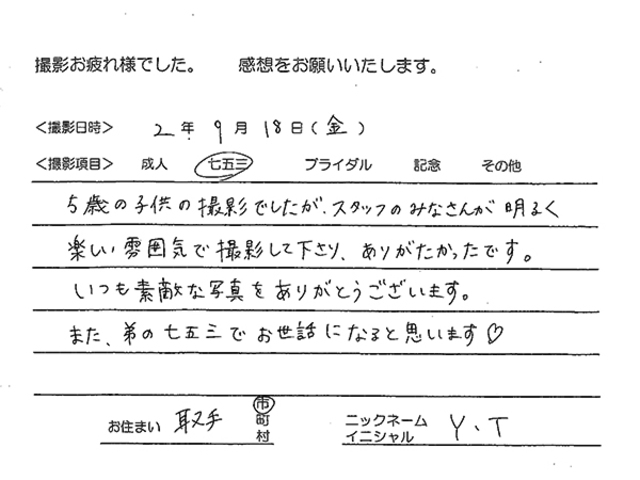 撮影お疲れ様でした。 感想をお願いいたします。
<撮影日時> 2年 9月 18日(金)
<撮影項目> 成人 七五三 ブライダル 記念 その他
5歳の子供の撮影でしたが、スタッフのみなさんが明るく
楽しい雰囲気で撮影して下さり、ありがたかったです。
いつも素敵な写真をありがとうございます。
また、弟の七五三でお世話になると思います♡
お住まい 取手 市 町 村 ニックネーム イニシャル Y.T